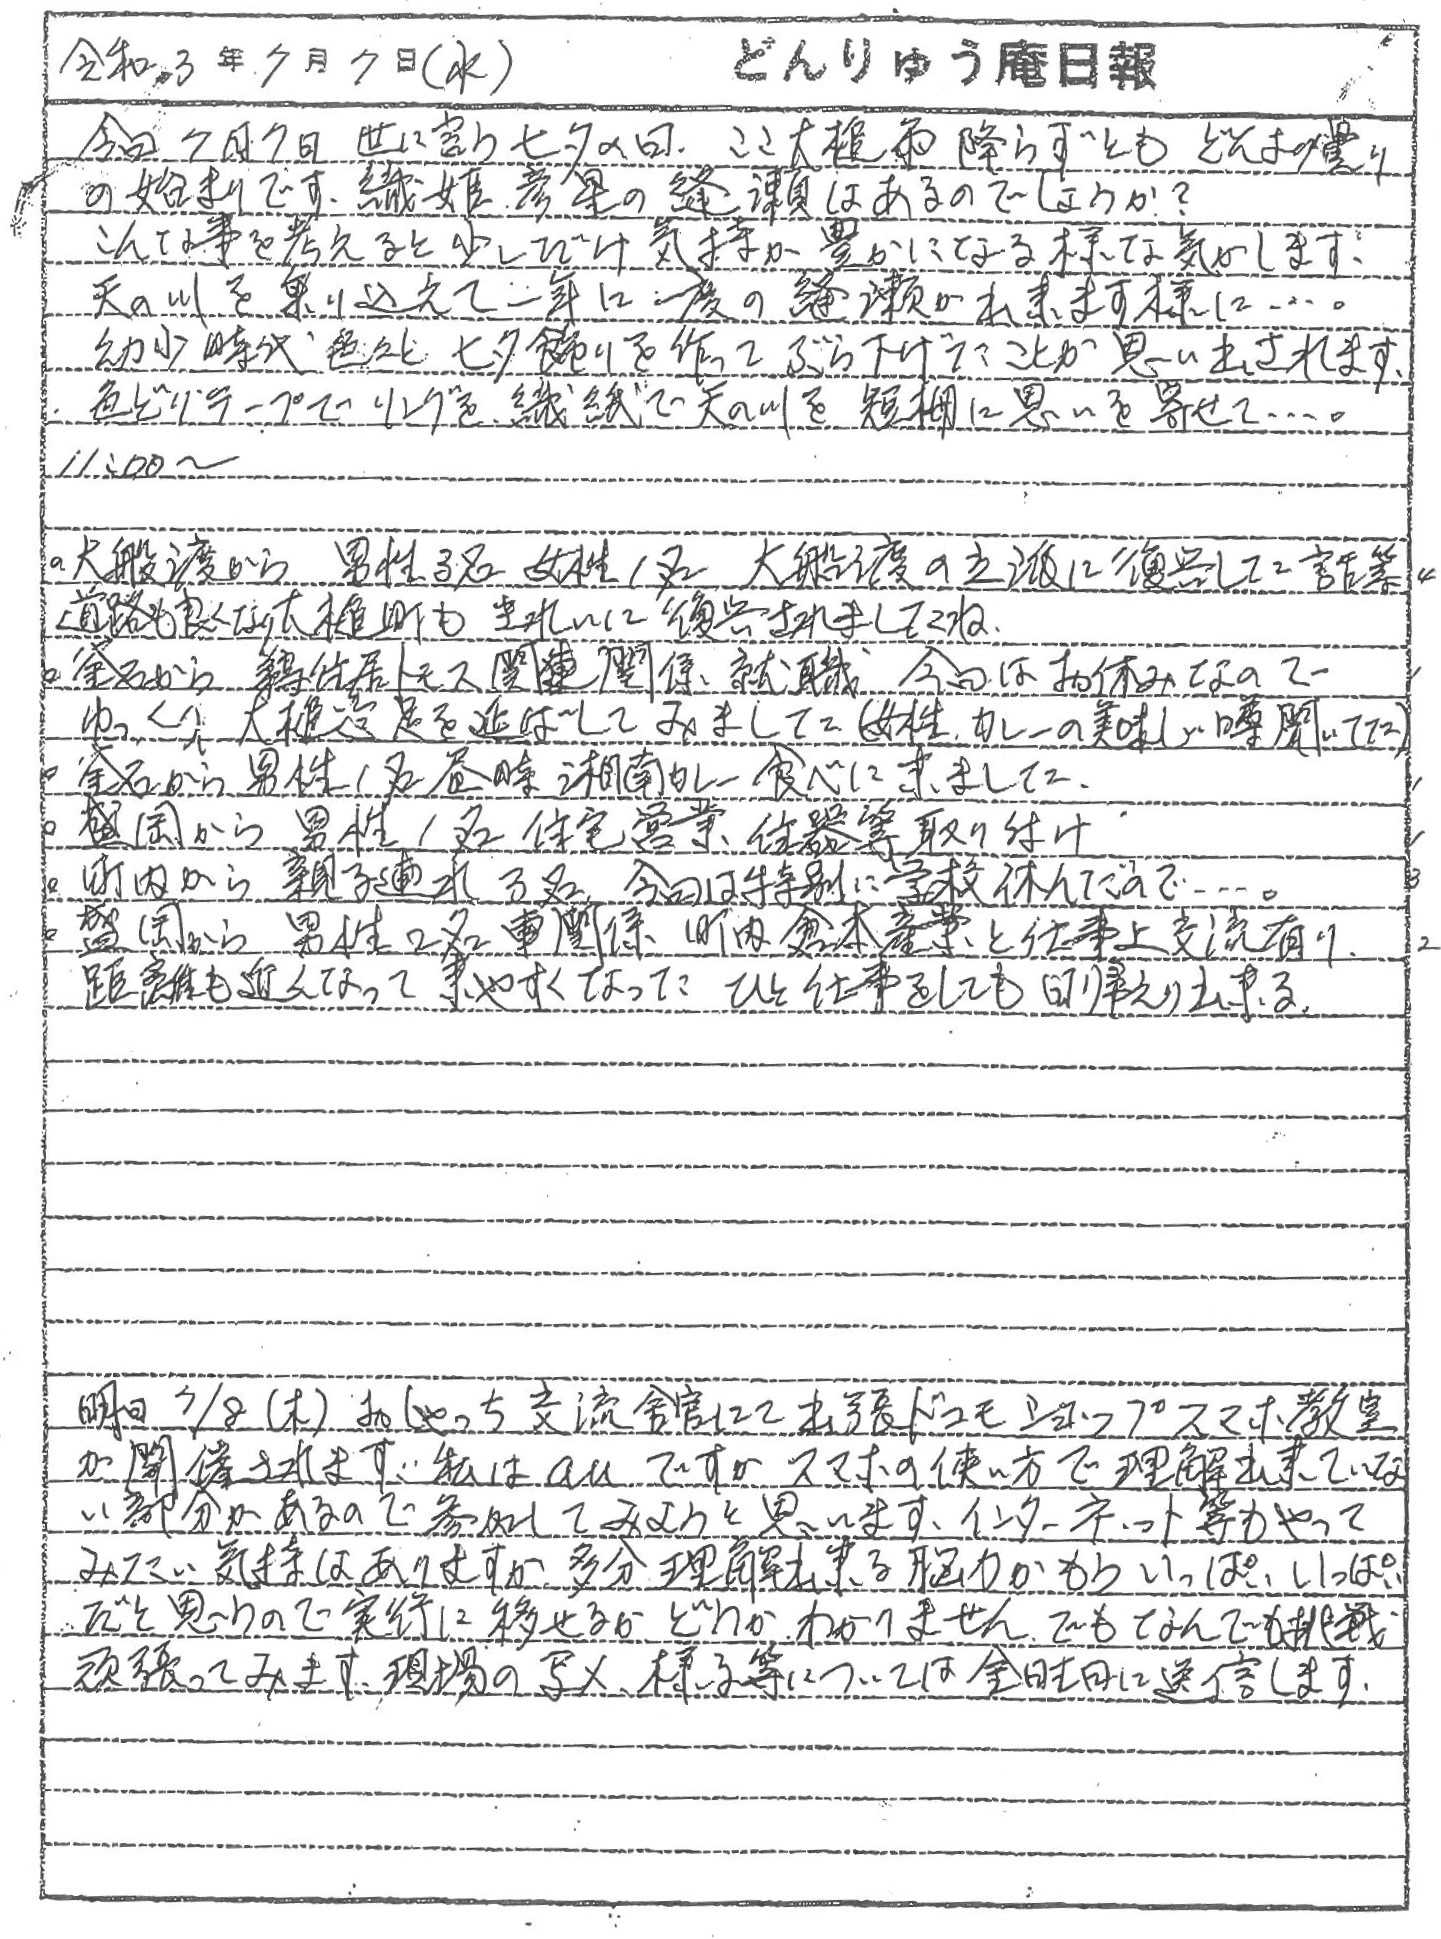 令和3年7月7日(水) どんりゅう庵日報
今日7月7日 世に言う七夕の日、ここ大槌雨降らずともどんより曇り
の始まりです、織姫、彦星の縫瀬はあるのでしょうか?
こんな事を考えると少しだけ気持が豊かになる様な気がします、
天の川を乗り込えて一年に一度の縫瀬が出来ます様に…。
幼少時代色々と七夕飾りを作ってぶら下げたことが思い出されます、
色どりテープでリングを、織紙で天の川を短柵に思いを寄せて…。
11:00〜
。大船渡から 男性3名 女性1名 大船渡の立派に復興した話等 4
道路も良くなり大槌町も きれいに復興されましたね、
。釜石から 鵜住居トモス関連関係、就職 今日はお休みなので 1
ゆっくり大槌迄足を延ばしてみました(女性、カレーの美味しい噂聞いてた)
。釜石から 男性1名 昼時 湘南カレー食べに来ました、 1
。盛岡から 男性1名 住宅営業、住器等取り付け 1
。町内から 親子連れ3名、今日は特別に学校休んだので…。 3
。盛岡から 男性2名 車関係 町内倉本産業と仕事上交流有り、 2
距離も近くなって来やすくなった ひと仕事をしても日帰えり出来る、
明日7/8(木)おしゃっち交流舎官にて出張ドコモショップスマホ教室
が開催されます、私はauですがスマホの使い方で理解出来ていな
い部分があるので参加してみようと思います、インターネット等もやって
みたい気持はありますが多分理解出来る脳力がもういっぱいいっぱい
だと思うので実行に移せるかどうかわかりません、でもなんでも挑戦
頑張ってみます、現場の写メ、様子等については金曜日に送信します、